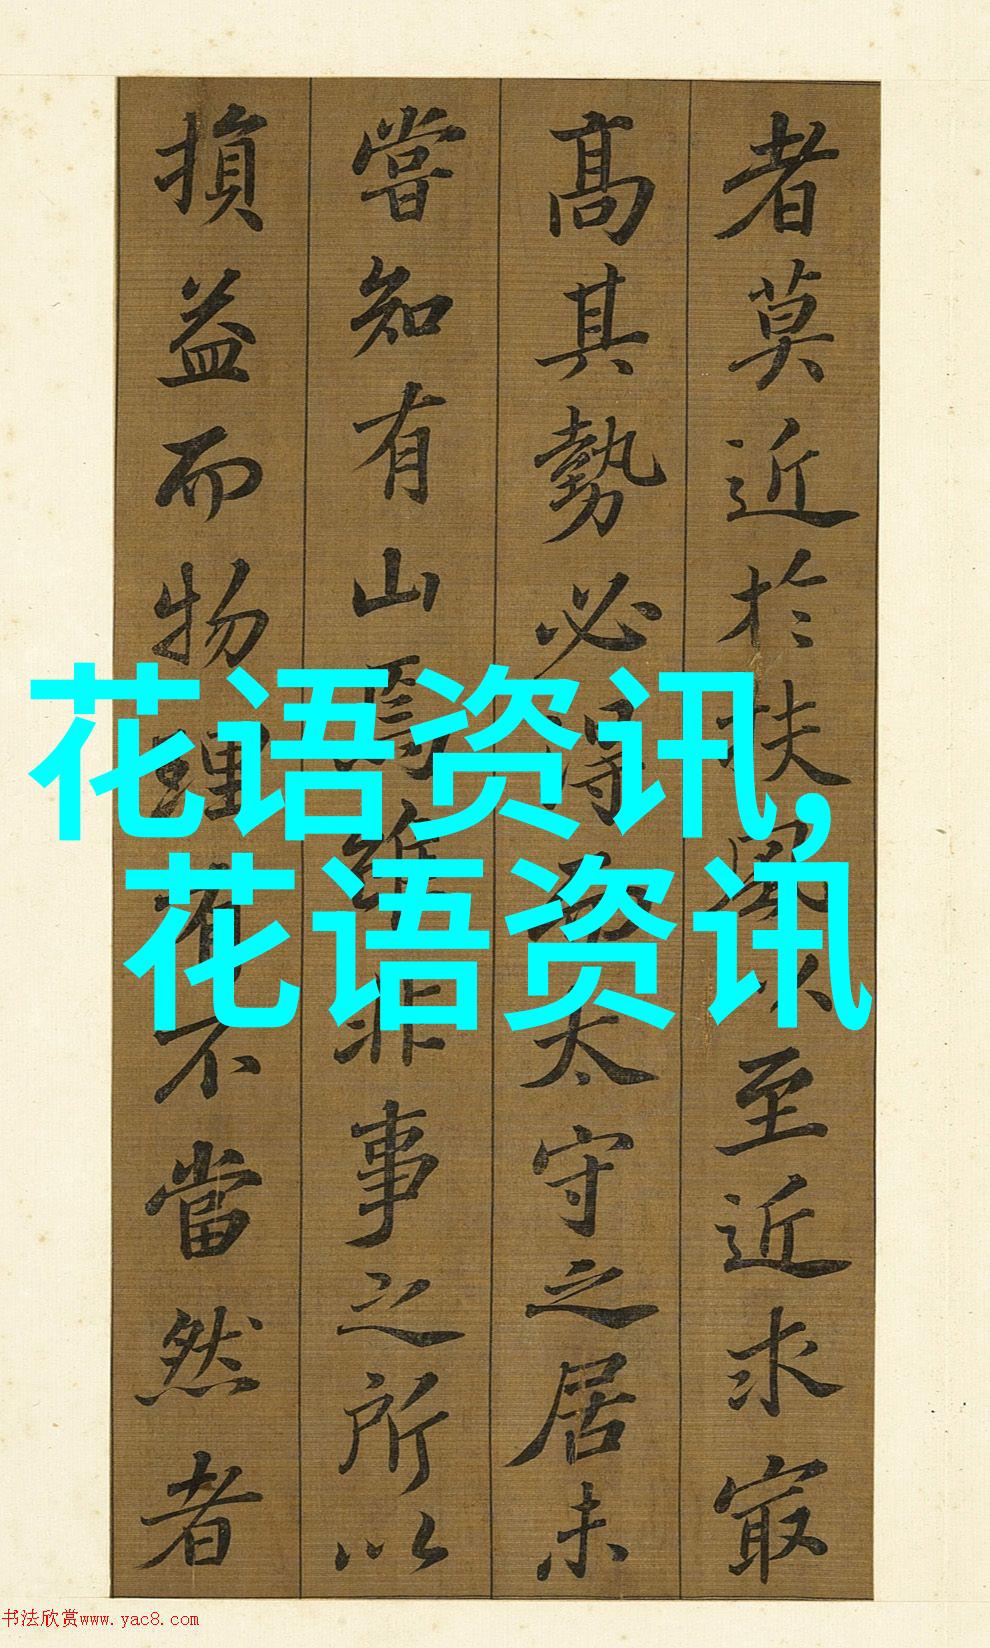 者莫近於扶風以至近求㝡
髙其勢必得而太守之居未
嘗知有山焉雖非事之所以
損益而物理有不當然者
花语资讯,
花语资讯
书法欣赏www.yac8.com